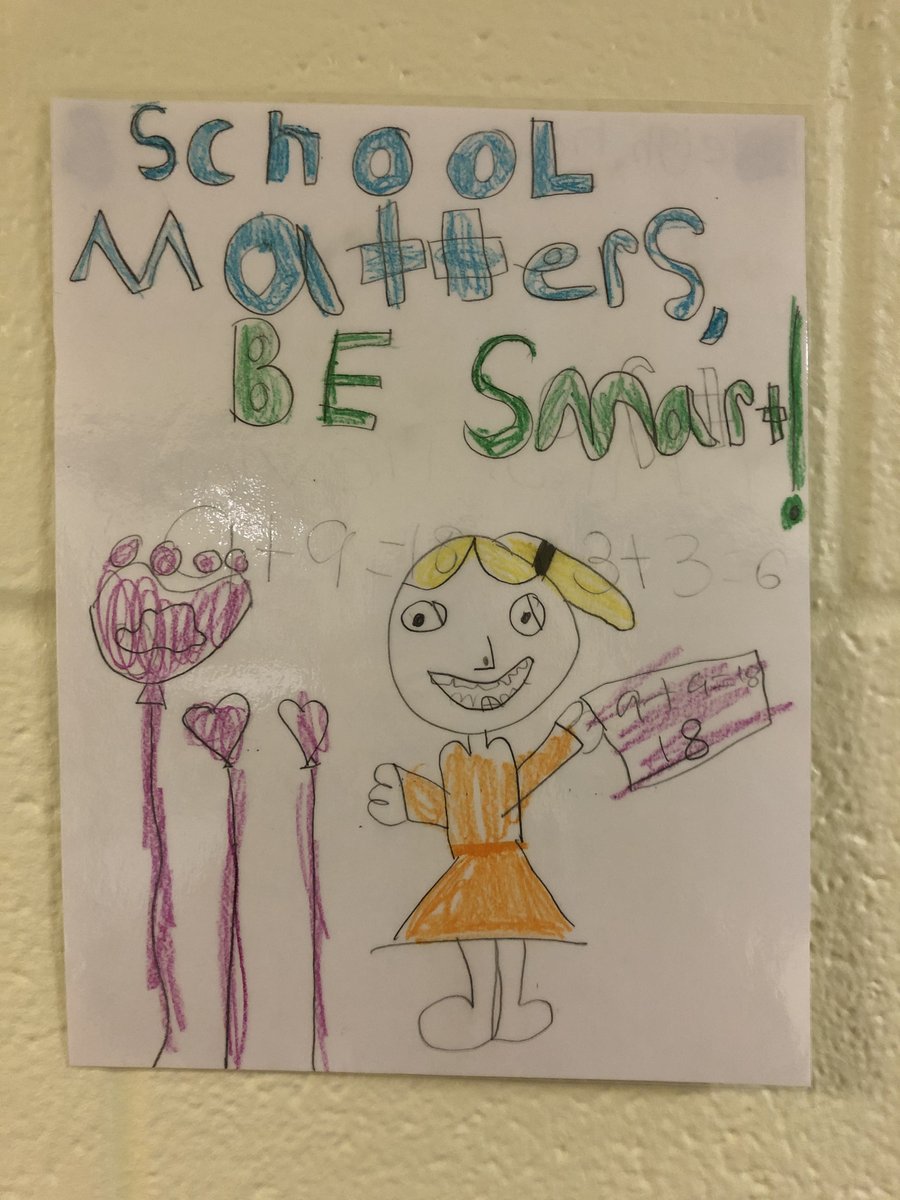 School
Matters,
BE Smart!
+ 9 = 18 3 + 3 = 6
9 + 9 = 18
18